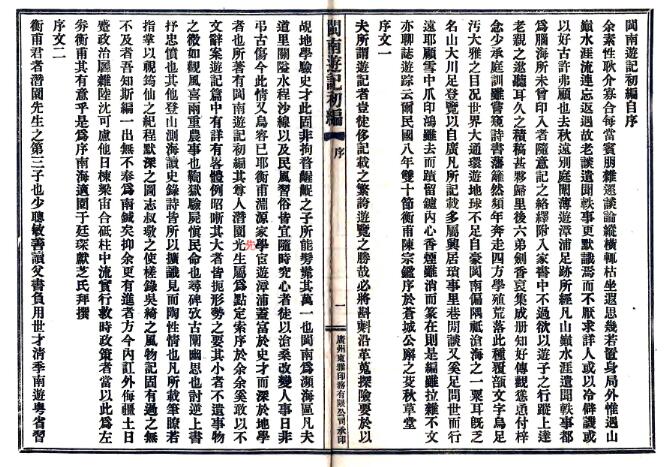 閩南遊記初編自序
余素性耿介寡合每當賓朋雜遝談論縱橫輒枯坐遐思幾若置身局外惟遇山
巔水涯流連忘返過故老談遺聞軼事更默識焉而不厭求詳人或以冷僻譏或
以好古許弗顧也去秋遠別庭闈薄遊漳浦足跡所經凡山巔水涯遺聞軼事都
為腦海所未曾印入者隨意記之絡繹附入家書中不過欲以遊子之行蹤上達
老親之遊聽耳久之積稿甚夥歸里後六弟劍香裒集成册知好傳觀慫恿付梓
念少承庭訓雖嘗窺詩書藩籬然頻年奔走四方學殖荒落此種覆瓿文字烏足
污大雅之目况世界大通環遊地球不足自豪閩南偏隅祗滄海之一粟耳旣乏
名山大川足登覽以自廣凡所記載多屬輿居瑣事里巷閒談又奚足問世而行
遠耶顧雪中爪印鴻雖去而蹟留鑪內心香煙雖消而篆在則是編雖拉雜不文
亦聊誌遊踪云爾民國八年雙十節衡甫陳宗鑑序於蒼城公廨之芟秋草堂
序文一
夫所謂遊記者豈徒侈記載之繁誇遊覽之勝哉必將斟斠沿革蒐探險要於以
閩南遊記初編
序
一
廣州東雅印務有限公司承印
覘地學驗史才此固非拘咅齷齪之子所能髣髴其萬一也閩南為瀕海區凡夫
道里關隘水程沙線以及民風習俗皆宜隨時究心者徒以滄桑改變人事日非
弔古傷今此情又烏容已耶衡甫淵源家學宦遊漳浦蓋富於史才而深於地學
者也所著有閩南遊記初編其尊人潛園先生屬為點定索序於余余奚敢以不
先
文辭案遊記篇中有詳有畧體例昭晰其大者皆扼形勢之要其小者不遺事物
之微如觀風喜雨重農事也鞫獄驗屍慎民命也尋碑攷古闡幽思也討逆上書
抒忠憤也其他登山測海讀史錄詩皆所以擴識見而陶性情也凡所載筆瞭若
指掌以視筠仙之紀程默深之圖志叔耘之使槎錄吳綺之風物記固有過之無
不及者吾知斯編一出無不奉為南鍼矣抑余更有進者方今內訌外侮疆土日
蹙政治屬雜陸沈可慮他日棟梁宙合砥柱中流實行救時政策者當以此為左
券衡甫其有意乎是為序南海適園于廷琛獻芝氏拜撰
序文二
衡甫君者潛園先生之第三子也少聰敏善讀父書負用世才清季南遊粵省習